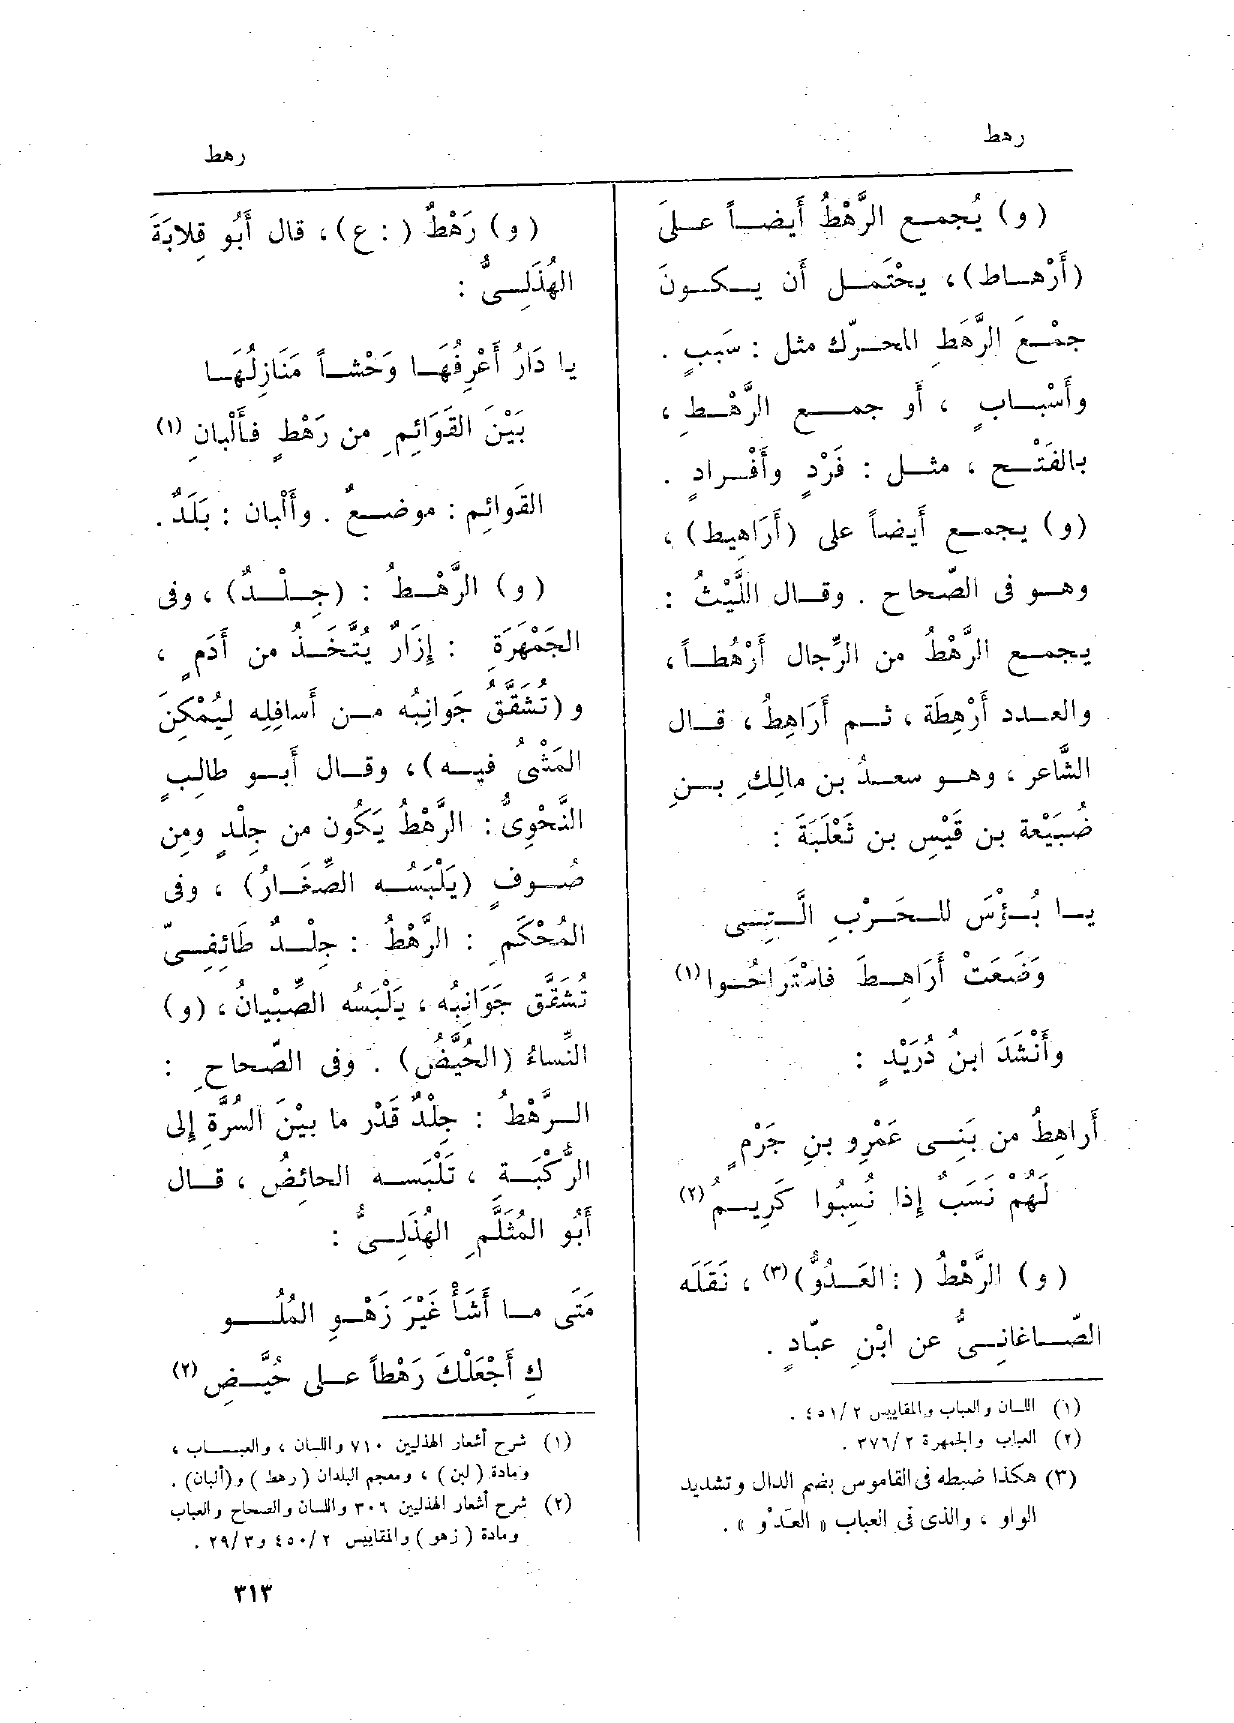 رهط
(و) يُجمع الرَّهْطُ أَيضاً على
(أَرْهاط)، يحْتَمل أَن يكونَ
جمْعَ الرَّهَطِ المحرّك مثل : سَبَبٍ .
وأَسْبابٍ ، أَو جمع الرَّهْطِ ،
بالفَتْح ، مثل : فَرْدٍ وأَفْرادٍ .
(و) يجمع أَيضاً على (أَرَاهِيط) ،
وهو فى الصّحاح . وقال اللَّيْثُ :
يجمع الرَّهْطُ من الرِّجال أَرْهُطاً ،
والعدد أَرْهِطَة ، ثم أَرَاهِطُ ، قال
الشَّاعر ، وهو سعدُ بن مالِكِ بنِ
ضُبَيْعة بن قَيْسِ بن ثَعْلَبَةَ :
يا بُؤْسَ للحَرْبِ الَّتِى
وَضَعَتْ أَرَاهِطَ فاسْتَراحُوا (١)
وأَنْشَدَ ابنُ دُرَيْدٍ :
أَراهِطُ من بَنِى عَمْرِو بنِ جَرْمٍ
لَهُمْ نَسَبٌ إِذا نُسِبُوا كَرِيمُ (٢)
(و) الرَّهْطُ (: العَدُوُّ) (٣) ، نَقَلَه
الصّاغانِىُّ عن ابْنِ عبّادٍ .
(١) اللسان والعباب والمقاييس ٤٥١/٢ .
(٢) العباب والجمهرة ٣٧٦/٢ .
(٣) هكذا ضبطه فى القاموس بضم الدال وتشديد
الواو ، والذى فى العباب « العَدْو » .
رهط
(و) رَهْطٌ (: ع) ، قال أَبُو قِلابَةَ
الهُذَلِىُّ :
يا دَارُ أَعْرِفُهَا وَحْشاً مَنَازِلُهَا
بَيْنَ القَوَائِمِ من رَهْطٍ فأَلْبانِ (١)
القَوائِم : موضعٌ . وأَلْبان : بَلَدٌ .
(و) الرَّهْطُ : (جِلْدٌ) ، وفى
الجَمْهَرَةِ : إِزَارٌ يُتَّخَذُ من أَدَمٍ ،
و (تُشَقَّقُ جَوانِبُه من أَسافِلِه لِيُمْكِنَ
المَشْىُ فيه) ، وقال أَبو طالِبٍ
النَّحْوِىُّ : الرَّهْطُ يَكُون من جِلْدٍ ومِن
صُوفٍ (يَلْبَسُه الصِّغارُ) ، وفى
المُحْكَمِ : الرَّهْطُ : جِلْدٌ طَائِفِىّ
تُشَقَّق جَوَانِبُه ، يَلْبَسُه الصِّبْيانُ ، (و)
النِّساءُ (الحُيَّضُ) . وفى الصّحاحِ :
الرَّهْطُ : جِلْدٌ قَدْر ما بيْنَ السُّرَّة إِلى
الرُّكْبَة ، تَلْبَسه الحائضُ ، قال
أَبُو المُثَلَّمِ الهُذَلِىُّ :
مَتَى ما أَشَأْ غَيْرَ زَهْوِ المُلُو
كِ أَجْعَلْكَ رَهْطاً على حُيَّضِ (٢)
(١) شرح أشعار الهذليين ٧١٠ واللسان ، والعباب ،
ومادة (لبن) ، ومعجم البلدان (رهط) و (ألبان) .
(٢) شرح أشعار الهذليين ٣٠٦ واللسان والصحاح والعباب
ومادة (زهو) والمقاييس ٤٥٠/٢ و ٢٩/٣ .
٣١٣